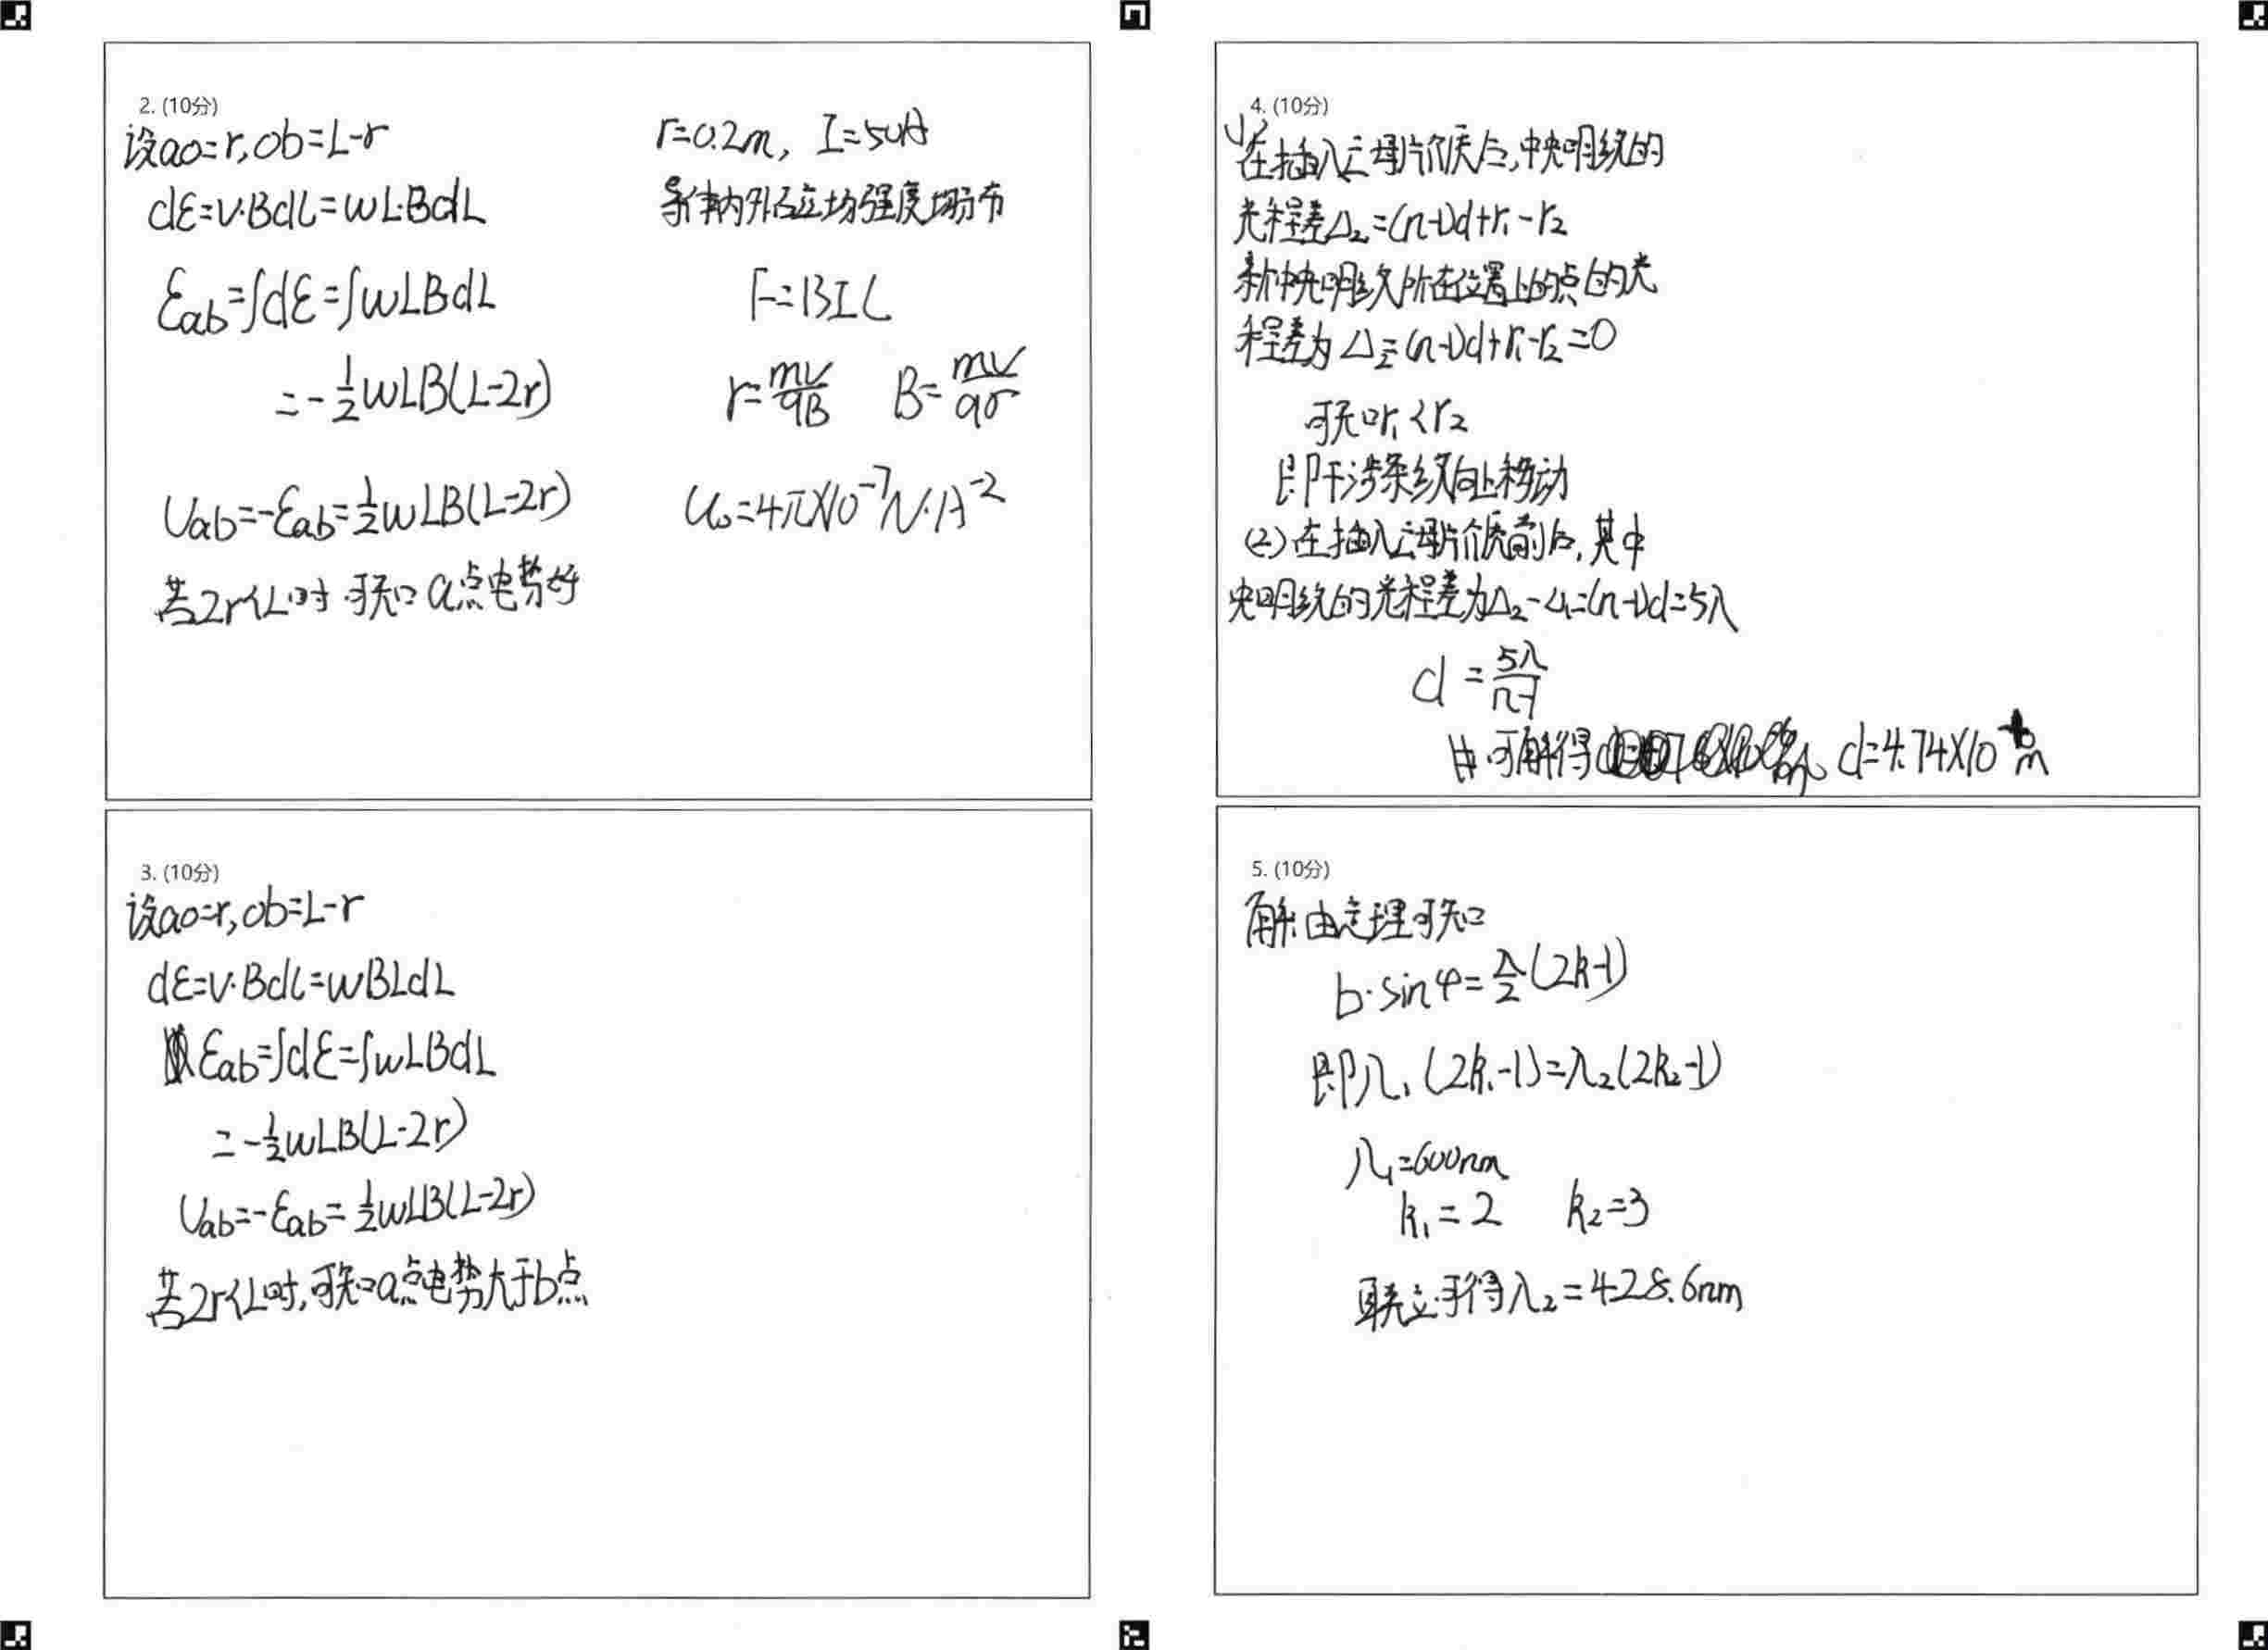 2. (10分)
设ao=r, ob=L-r
dε=v·Bdl=wL·BdL
εab=∫dε=∫wLBdL
=-1/2wLB(L-2r)
Uab=-εab=1/2wLB(L-2r)
若2r<L时 可知a点电势好
r=0.2m, I=50A
导体内外磁场强度均分布
F=BIL
r=mv/qB B=mv/qr
u₀=4π×10⁻⁷N·A⁻²
3. (10分)
设ao=r, ob=L-r
dε=v·Bdl=wBLdL
εab=∫dε=∫wLBdL
=-1/2wLB(L-2r)
Uab=-εab=1/2wLB(L-2r)
若2r<L时,可知a点电势大于b点
4. (10分)
在插入云母片介质后,中央明纹的
光程差Δ₂=(n-1)d+r₁-r₂
新中央明纹所在位置上的点的光
程差为Δ₂=(n-1)d+r₁-r₂=0
可知r₁<r₂
即干涉条纹向上移动
(2)在插入云母片介质前后,其中
央明纹的光程差为Δ₂-Δ₁=(n-1)d=5λ
d=5λ/n-1
可解得 d=4.74×10 m
5. (10分)
解:由定理可知
b·sinφ=λ/2(2k-1)
即λ₁(2k₁-1)=λ₂(2k₂-1)
λ₁=600nm
k₁=2 k₂=3
联立可得λ₂=428.6nm